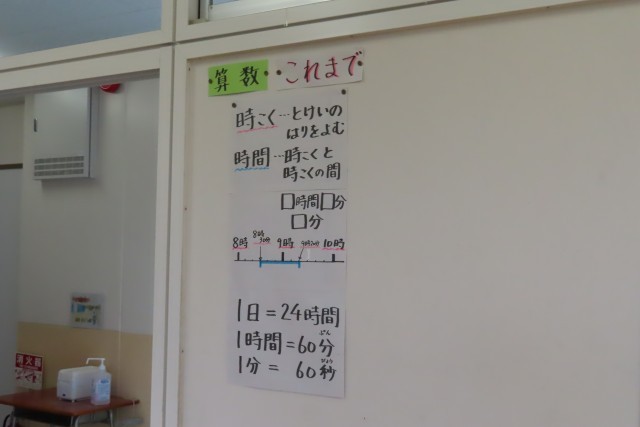 算数 これまで
時こく…とけいの
はりをよむ
時間…時こくと
時こくの間
□時間□分
□分
8時 9時 10時
1日=24時間
1時間=60分
ぷん
1分=60秒
びょう
消火器